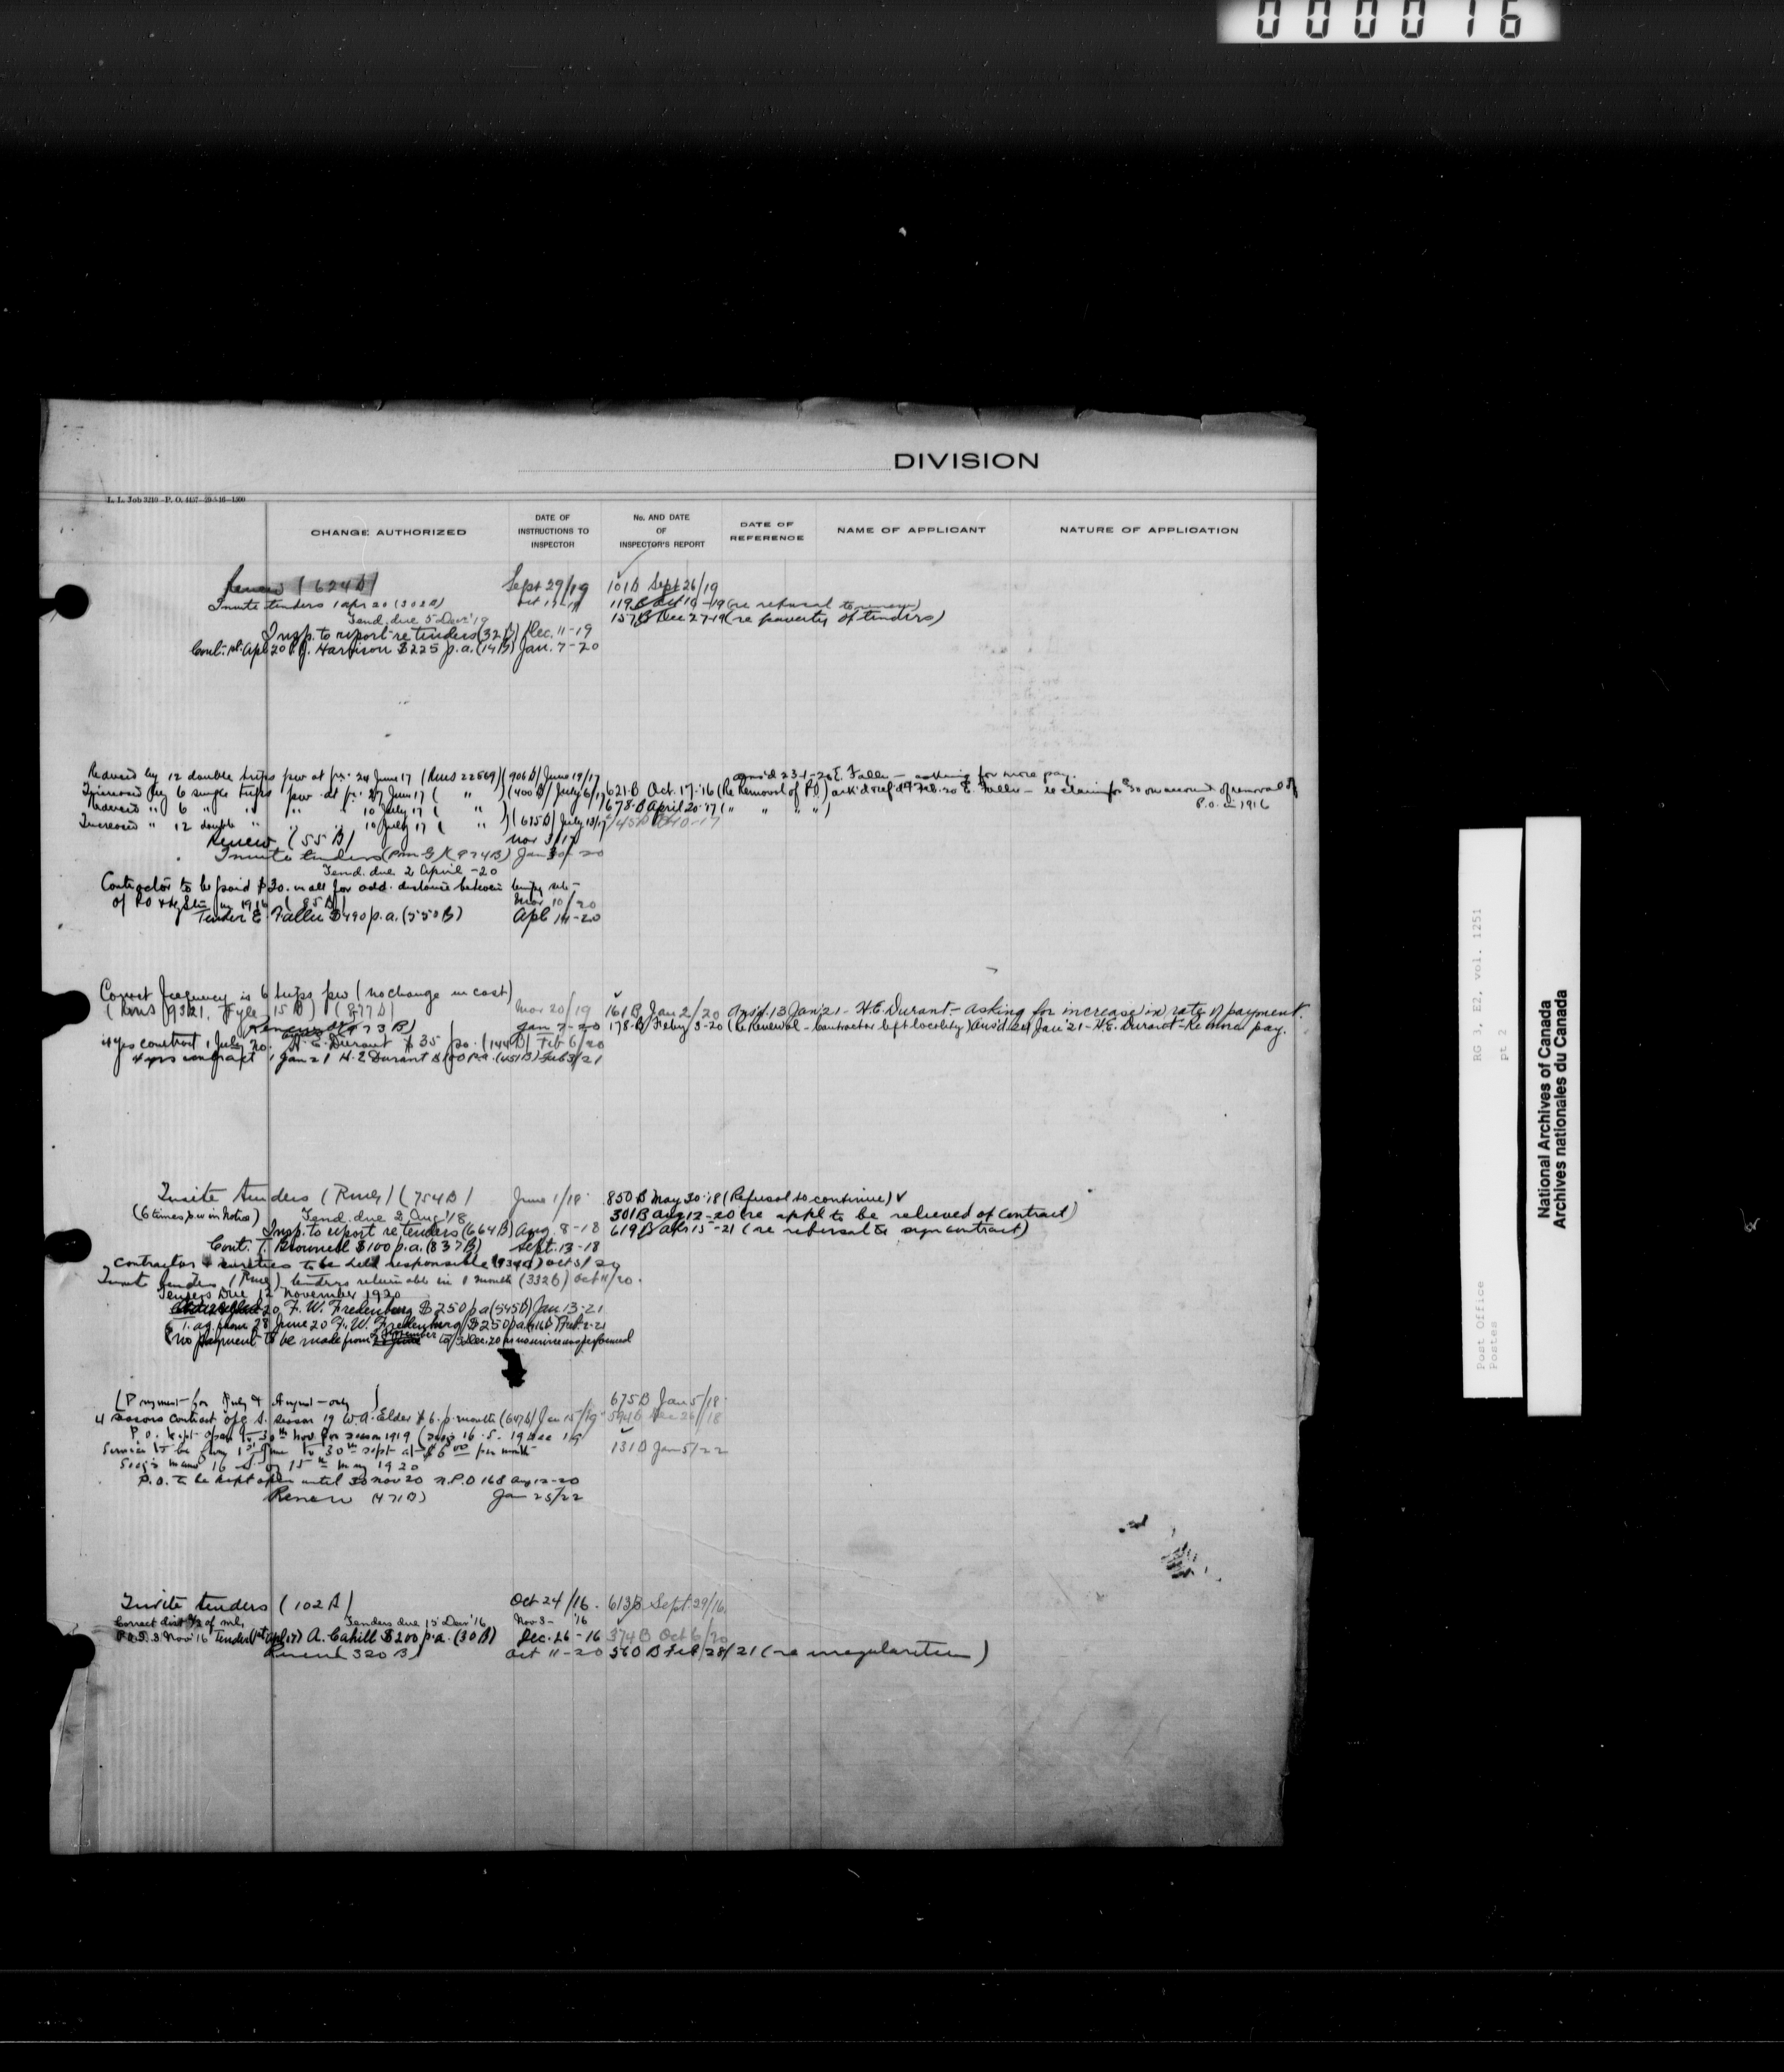 000016
DIVISION
L. L. Job 3210-P. O. 4457-29-5-16-1500
CHANGE AUTHORIZED
DATE OF INSTRUCTIONS TO INSPECTOR
No. AND DATE OF INSPECTOR'S REPORT
DATE OF REFERENCE
NAME OF APPLICANT
NATURE OF APPLICATION
Renew (624B) Sept 29/19 101B Sept 26/19
Invite tenders 1 Apr 20 (302B) Oct 17-19 119B Oct 10-19 (re refusal to renew)
Tend. due 5 Dec '19 157B Dec 27-19 (re poverty of tenders)
Insp. to report re tenders (32B) Dec. 11-19
Cont. 1st Apl 20 Harrison $225 p.a. (14B) Jan. 7-20
Reduced by 12 double trips pw at fr. 24 June 17 (Rms 22569) (906B) June 19/17 ans'd 23-1-20 E. Fallu - asking for more pay.
Increased by 6 single trips pw at fr. 27 June 17 ( " ) (400B) July 6/17 621-B Oct. 17-'16 (Re Removal of P.O.) ack'd & ref'd 17 Feb. 20 E. Fallu - re claim for 30 on account of removal of P.O. in 1916
" 6 " " " " 10 July 17 ( " ) 678-B April 20-'17 ( " " " " )
Increased " 12 double " " " 10 July 17 ( " ) (615B) July 13/17
Renew (55B) Nov 3/17
Invite tenders (Pm G) (974B) Jan 30-20
Tend. due 2 April -20
Contractor to be paid $30. in all for add. distance between
of PO & Ry Stn in 1916 (85B) Mar 10/20
Tender E. Fallu $490 p.a. (550B) Apl 14-20
Correct frequency is 6 trips pw (no change in cost)
(Rms 9321, Fyle 15B) (877B) Mar 20/19 161B Jan 2/20 Ans'd. 13 Jan '21 - H.E. Durant - asking for increase in rate of payment.
Renew (473B) Jan 7-20 178-B Feby 3-20 (Re Renewal - Contractor left locality) Ans'd 24 Jan '21 - H.E. Durant - Re more pay.
4 yrs contract 1 July 20. H. E. Durant $35 pa. (144B) Feb 6/20
4 yrs contract 1 Jan 21 H. E Durant $100 p.a. (451B) Feb 3/21
Invite tenders (Rms) (754B) June 1/18 850B May 30-'18 (Refusal to continue)
(6 times p.w in Notice) Tend. due 2 Aug '18 301B Aug 12-20 (re appl to be relieved of contract)
Insp. to report re tenders (664B) Aug. 8-18 619B Apr 15-21 (re refusal to sign contract)
Cont. T. Brownell $100 p.a. (837B) Sept. 13-18
contractor & sureties to be held responsible (934B) Oct 5/20
Invite tenders (Rms) tenders returnable in 1 month (332B) Oct 11/20.
Tenders Due 12 November 1920
F. W. Fredenburg $250 p a (545B) Jan 13-21
T. ag. from 28 June 20 F. W. Fredenburg $250 pa Feb. 2-21
(No payment to be made from 2 November to 3 Dec. 20 as no service was performed
(Payment for July & August - only) 675B Jan 5/18
4 seasons contract season 19 W. A. Elder $6. p. month (647B) Jan 15/19 594B Dec 26/18
P. O. kept open to 30th Nov for season 1919
Service to be from 1st June to 30th Sept at $6.00 per month 131B Jan 5/22
P.O. to be kept open until 30 Nov 20 N.P.O 168 Aug 12-20
Renew (471B) Jan 25/22
Invite tenders (102B) Oct 24/16. 613B Sept. 29/16.
Correct dist ½ of ml, Tenders due 15 Dec '16 Nov 3- '16
P.O.S. 3 Nov '16 Tender (1st Apl 17) A. Cahill $200 p.a. (30B) Dec. 26-16 374B Oct 6/20
Renew (320B) Oct 11-20 560B Feb 28/21 (re irregularities)
Post Office
Postes
RG 3, E2, vol. 1251
pt 2
National Archives of Canada
Archives nationales du Canada